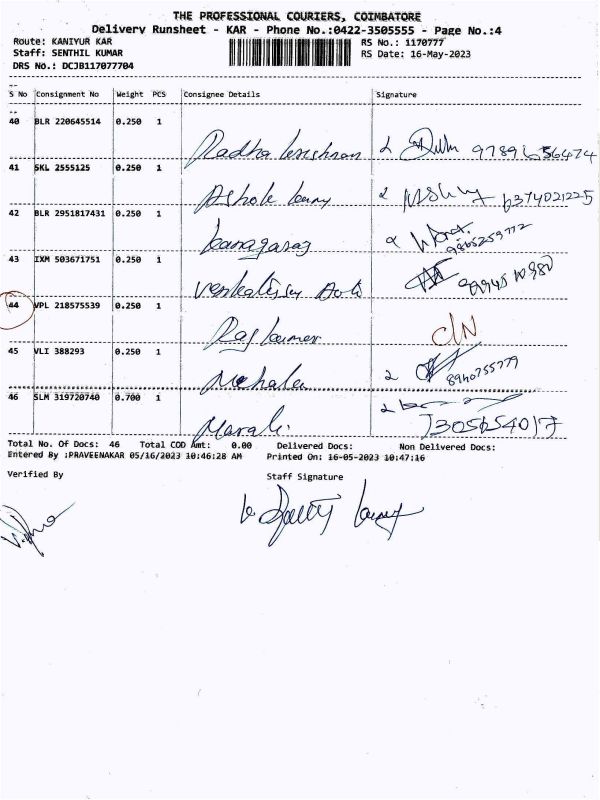 THE PROFESSIONAL COURIERS, COIMBATORE
Delivery Runsheet - KAR - Phone No.:0422-3505555 - Page No.:4
Route: KANIYUR KAR
RS No.: 1170777
Staff: SENTHIL KUMAR
RS Date: 16-May-2023
DRS No.: DCJB117077704
S No Consignment No Weight PCS Consignee Details Signature
40 BLR 220645514 0.250 1
Radha krishnan 9789656474
41 SKL 2555125 0.250 1
Ashok kumy 6374021225
42 BLR 2951817431 0.250 1
kanagaraj 9865259772
43 IXM 503671751 0.250 1
44 VPL 218575539 0.250 1
Raj kumar
45 VLI 388293 0.250 1
8940755779
46 SLM 319720740 0.700 1
Murali 7305654017
Total No. Of Docs: 46 Total COD Amt: 0.00 Delivered Docs: Non Delivered Docs:
Entered By :PRAVEENAKAR 05/16/2023 10:46:28 AM Printed On: 16-05-2023 10:47:16
Verified By Staff Signature